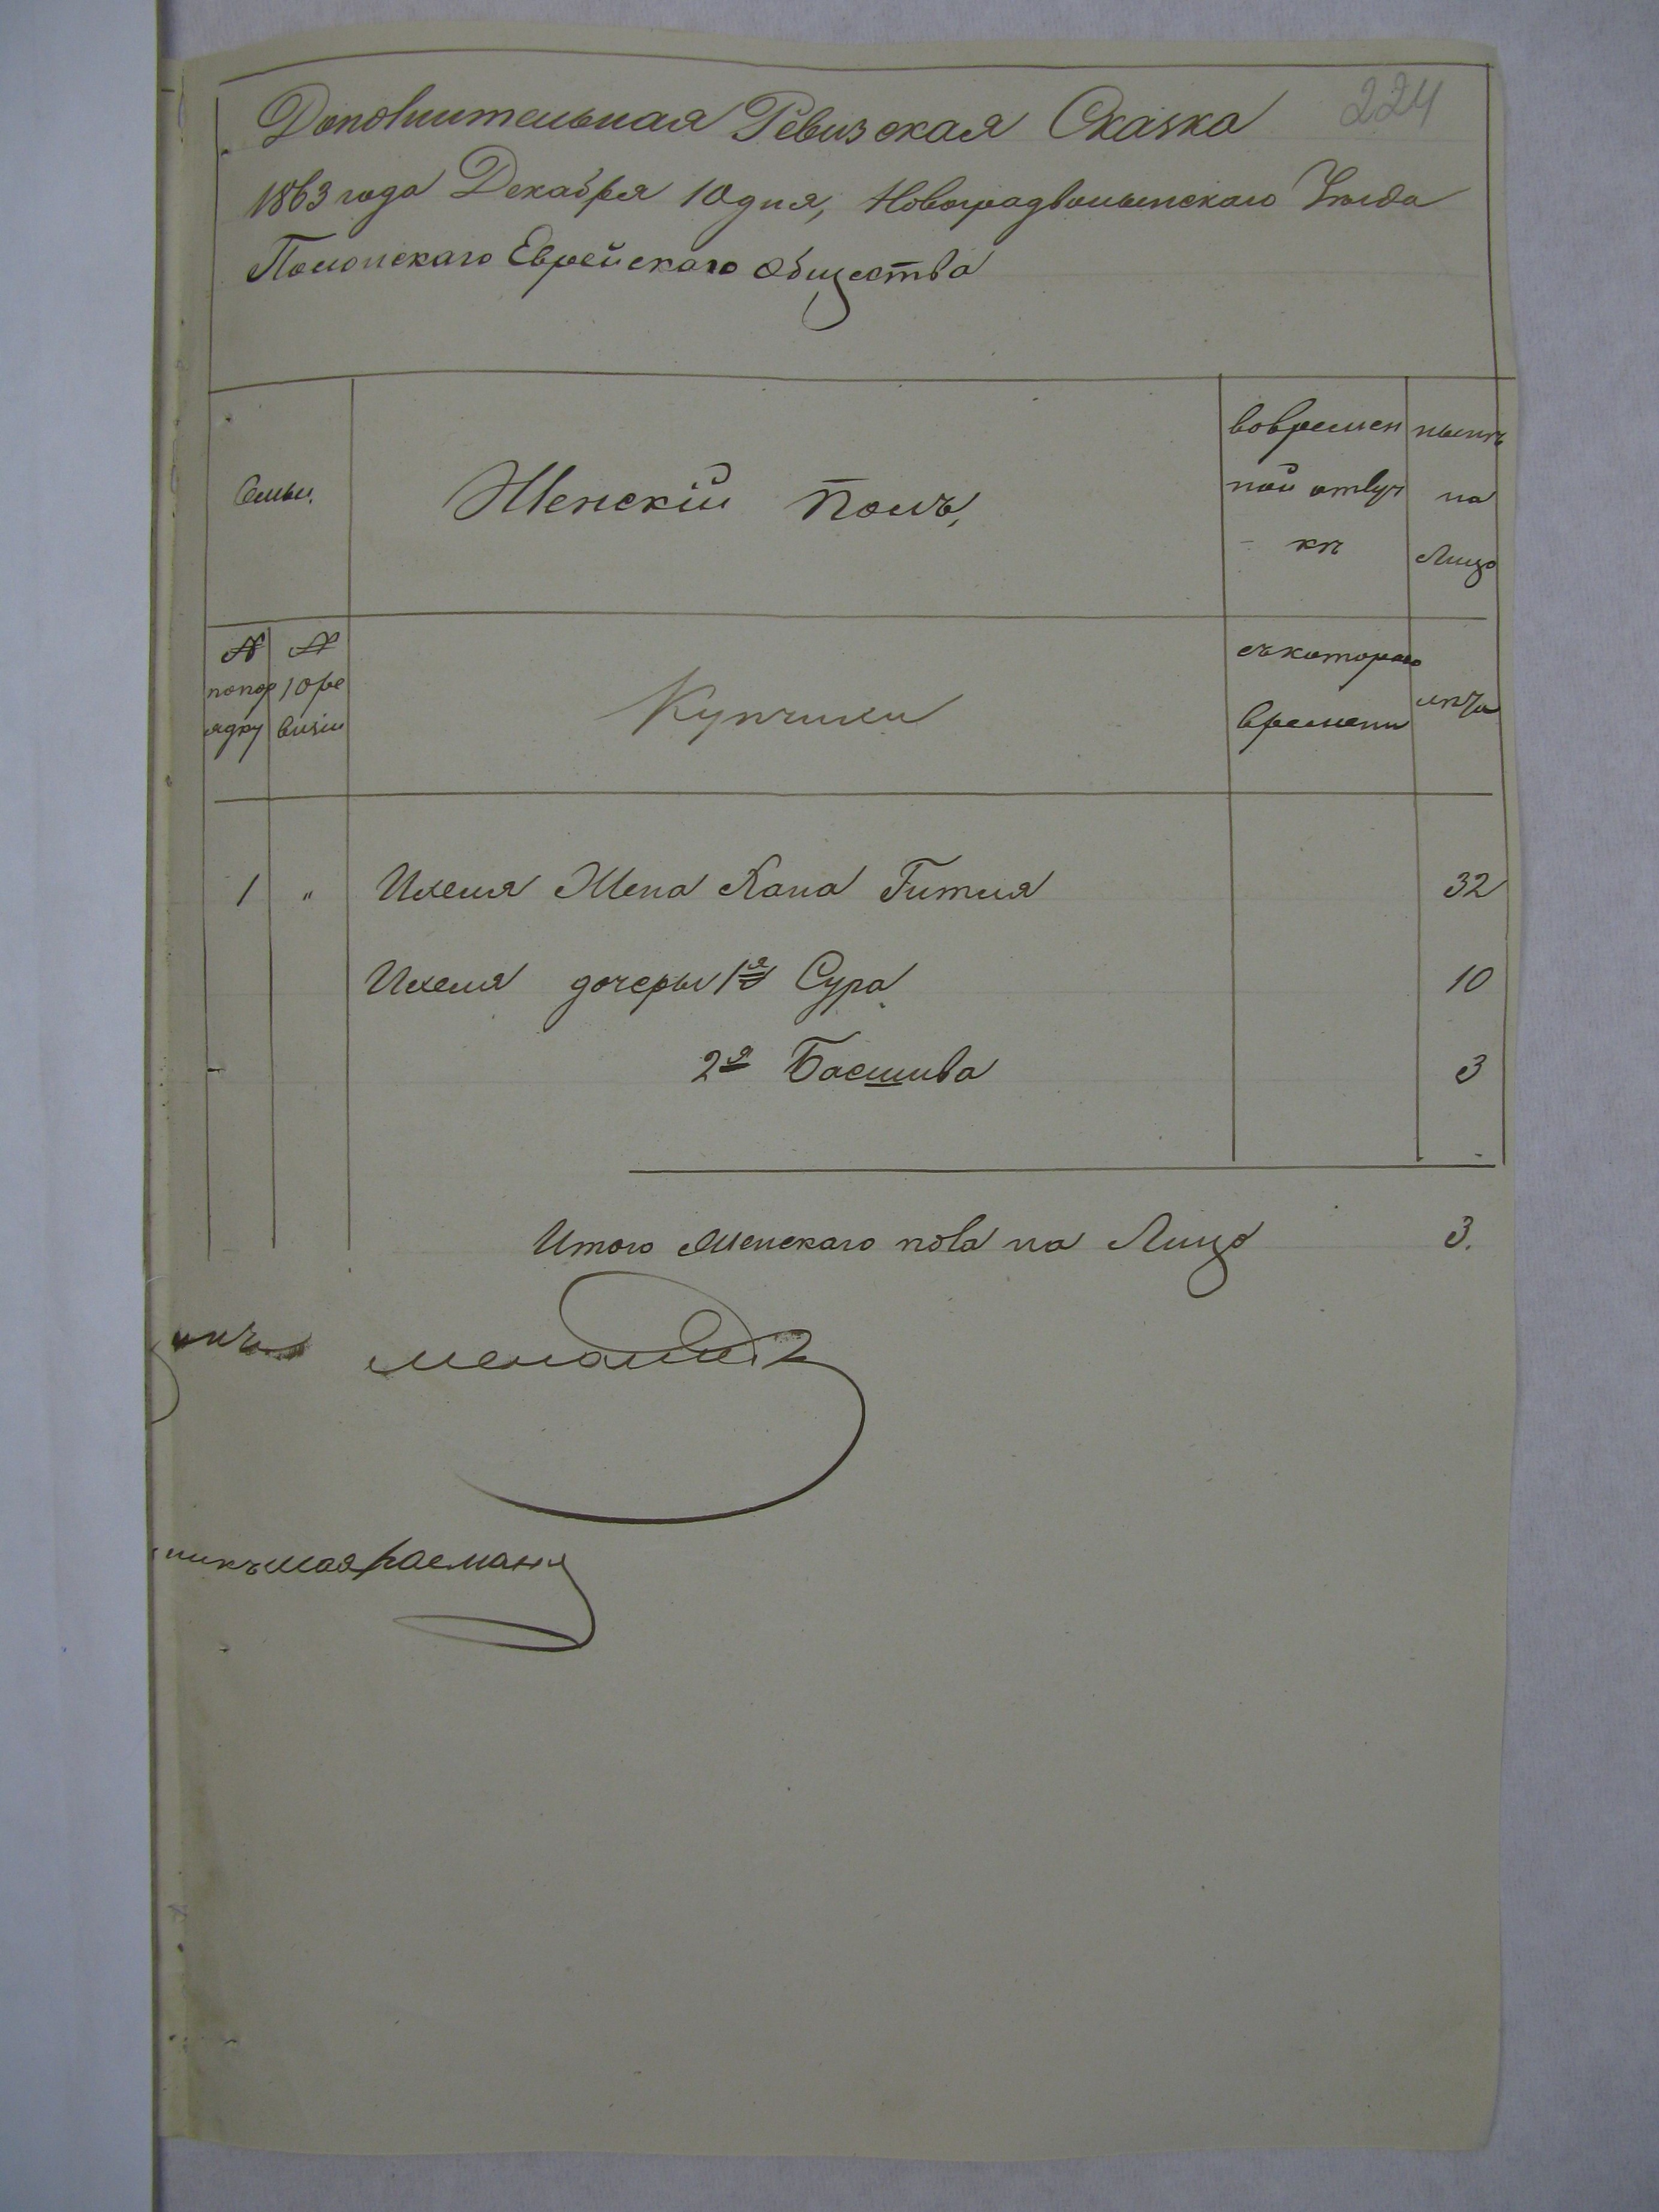 Дополнительная Ревизская Сказка 224
1863 года Декабря 10 дня, Новоградволынскаго Уезда
Полонскаго Еврейскаго общества
Семьи.
Женскій Полъ,
вовремен
ной отлуч
кѣ
нынѣ
на
Лицо
№
попор
ядку
№
10 ре
визіи
Купчихи
съкотораго
времени
лѣта
1 " Ихеля Жена Хана Гитля 32
Ихеля дочеры 1я Сура 10
2я Басшива 3
Итого Женскаго пола на Лицо 3.